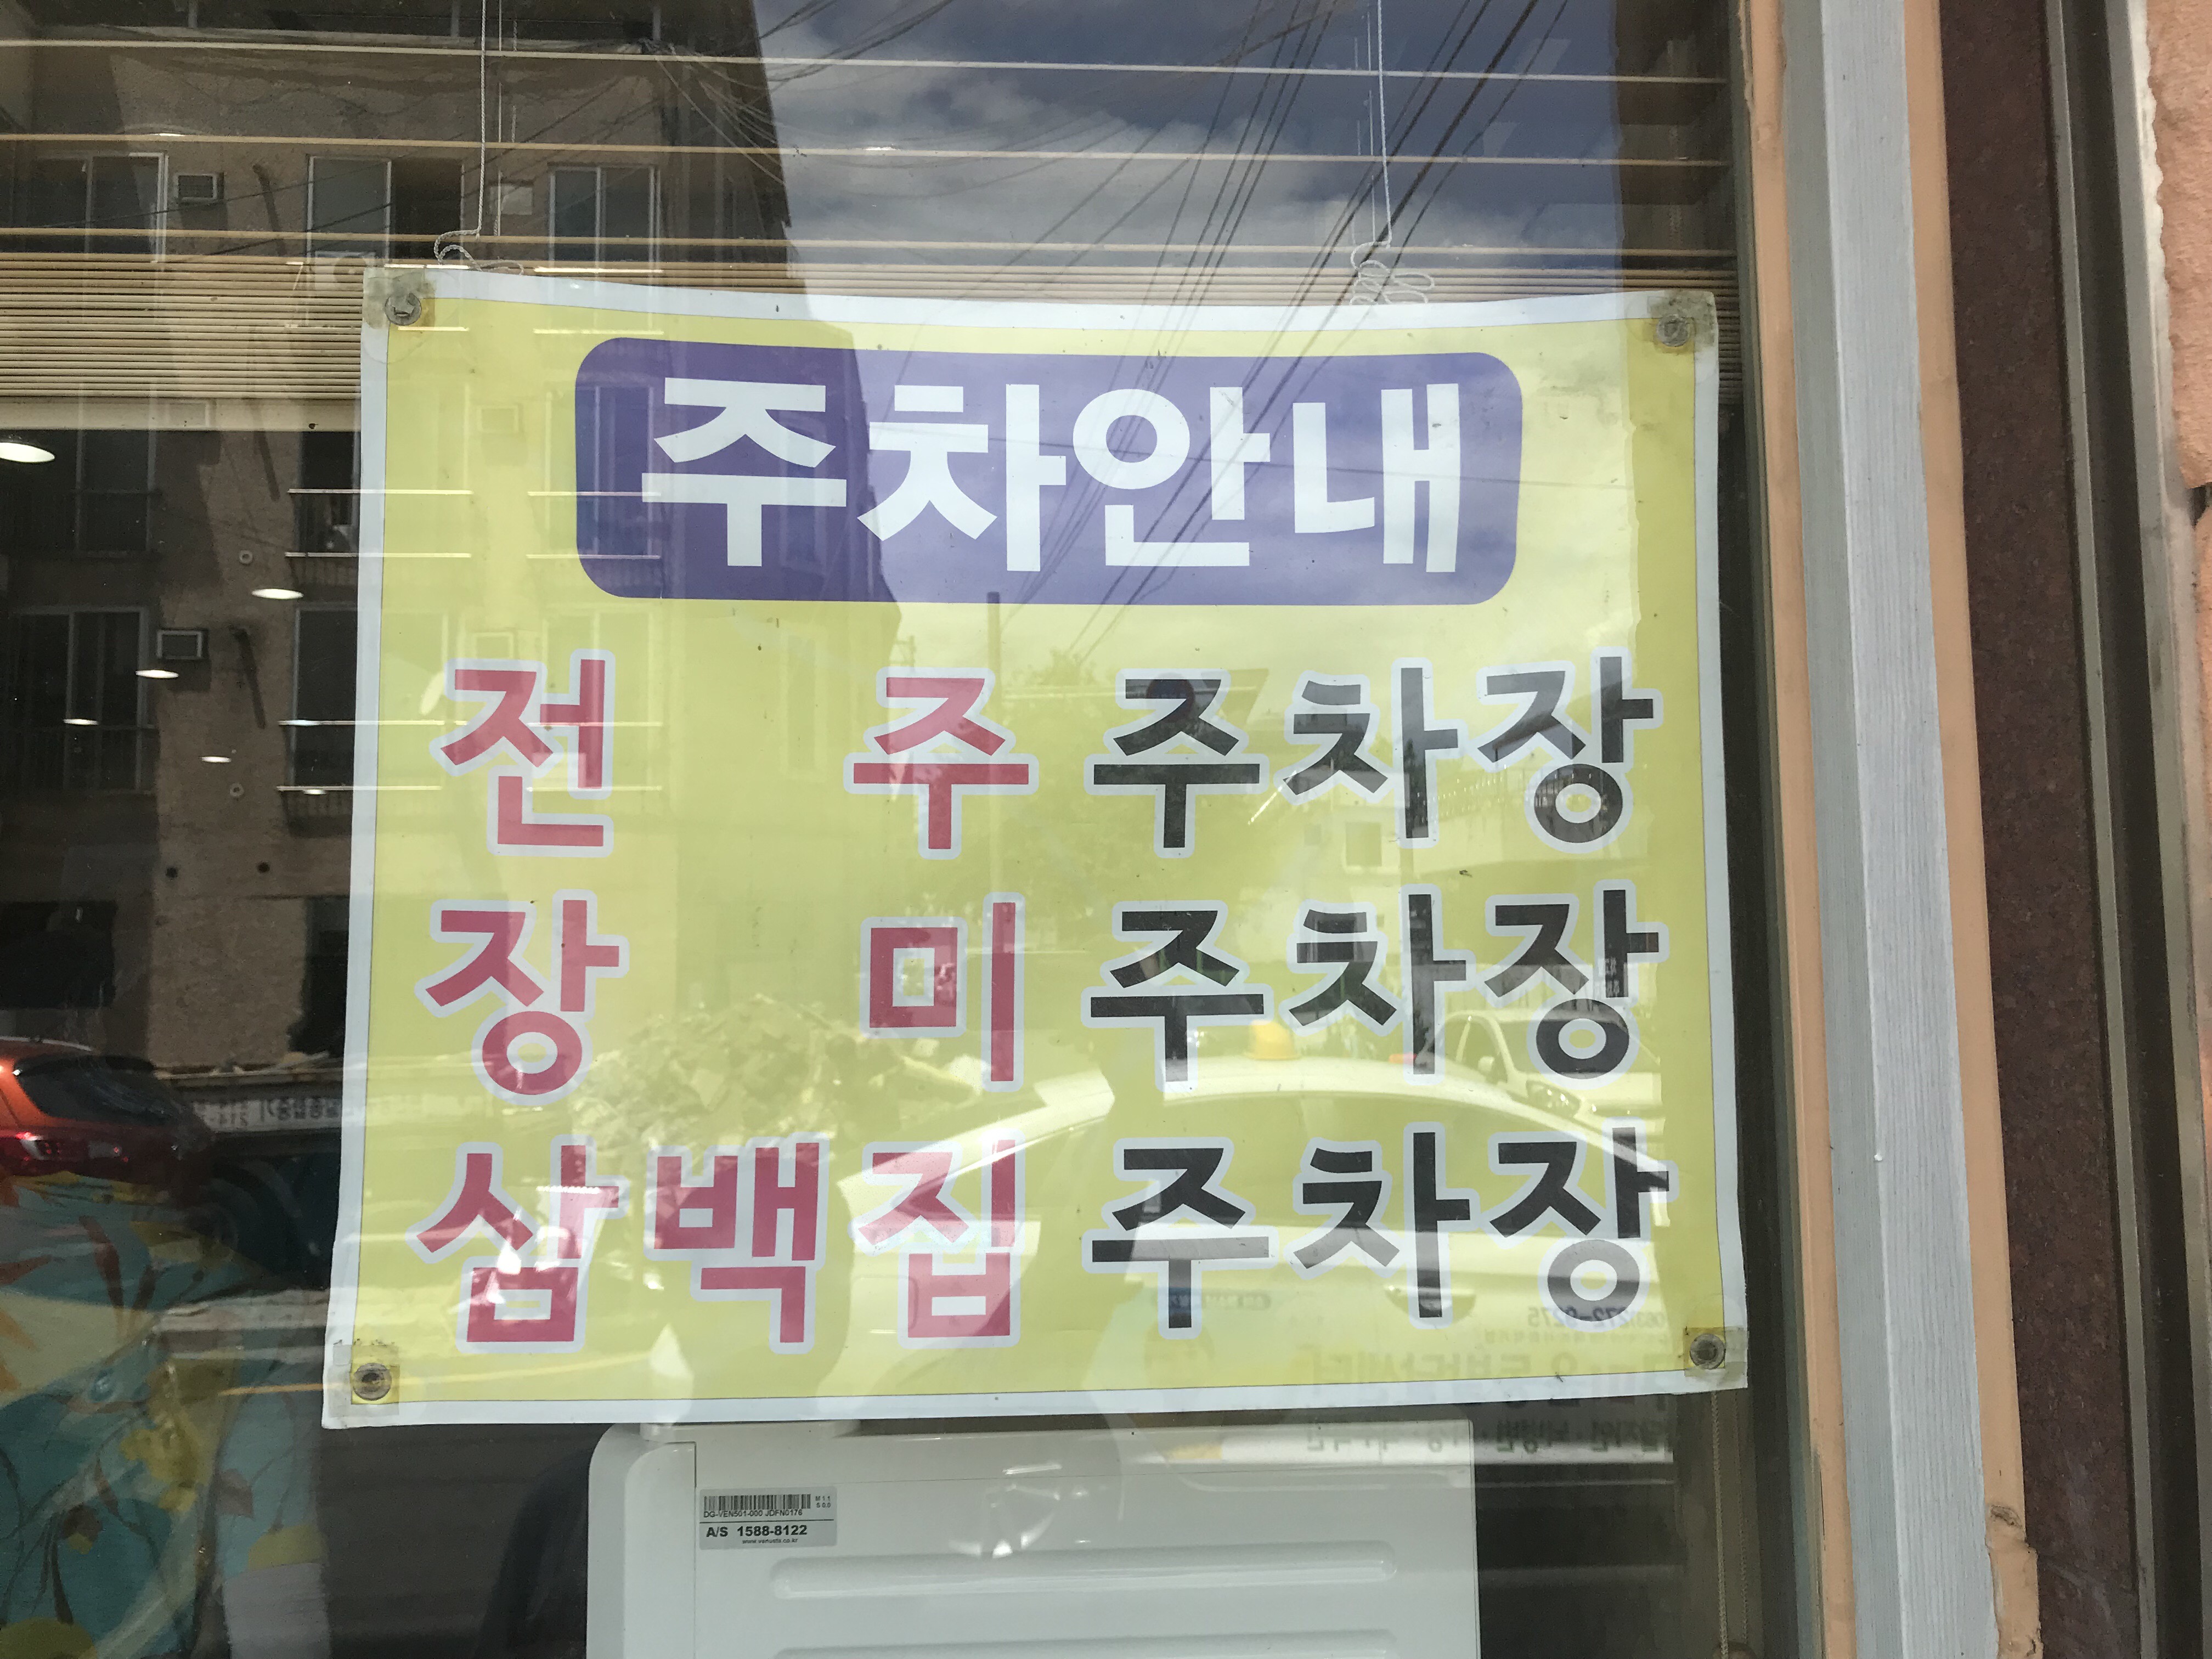 주차안내
전 주 주차장
장 미 주차장
삼백집 주차장
DG-VEN501-000 JDFN0176
A/S 1588-8122